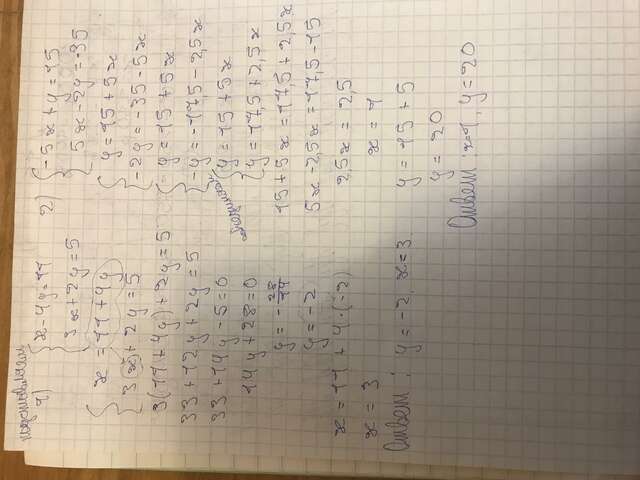 подстановкой
1) { x - 4y = 11
3x + 2y = 5
{ x = 11 + 4y
3x + 2y = 5
3(11 + 4y) + 2y = 5
33 + 12y + 2y = 5
33 + 14y - 5 = 0
14y + 28 = 0
y = - 28/14
y = -2
x = 11 + 4·(-2)
x = 3
Ответ: y = -2, x = 3
2) { -5x + y = 15
5x - 2y = -35
{ y = 15 + 5x
-2y = -35 - 5x
{ y = 15 + 5x
-y = -17,5 - 2,5x
{ y = 15 + 5x
y = 17,5 + 2,5x
15 + 5x = 17,5 + 2,5x
5x - 2,5x = 17,5 - 15
2,5x = 2,5
x = 1
y = 15 + 5
y = 20
Ответ: x=1, y = 20